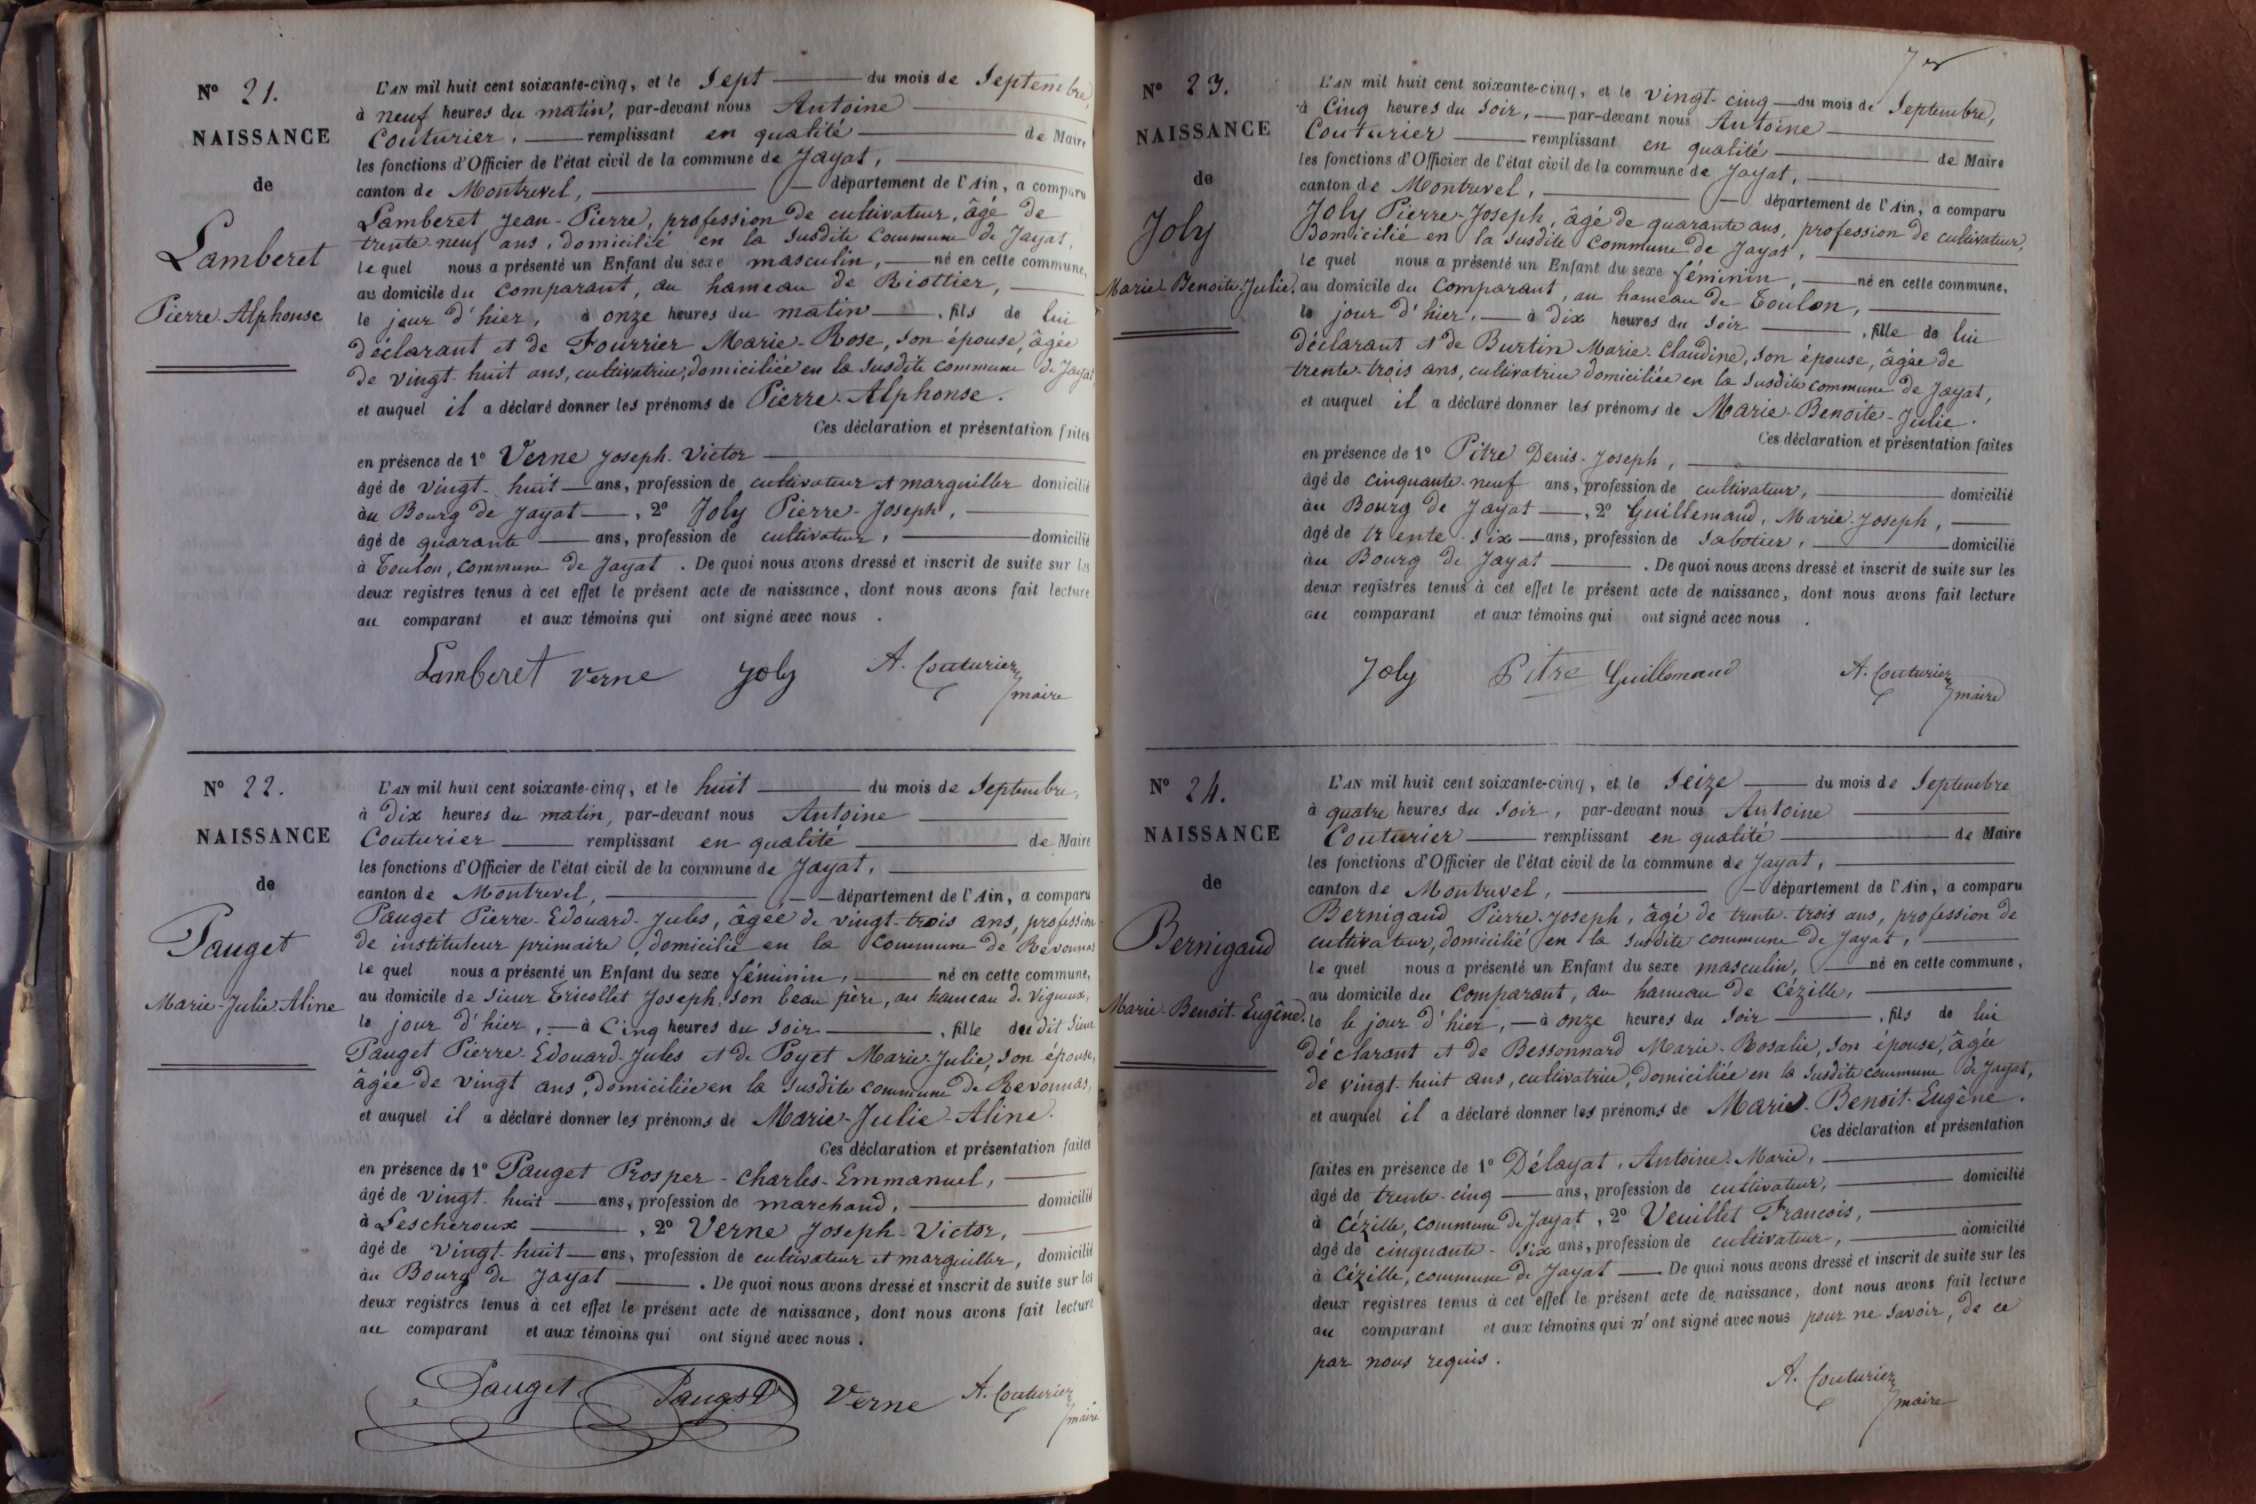 Nº 21.
NAISSANCE
de
Lamberet
Pierre-Alphonse
L'AN mil huit cent soixante-cinq, et le Sept du mois de Septembre,
à neuf heures du matin, par-devant nous Antoine
Couturier, remplissant en qualité de Maire
les fonctions d'Officier de l'état civil de la commune de Jayat,
canton de Montrevel, département de l'Ain, a comparu
Lamberet Jean-Pierre, profession de cultivateur, âgé de
trente-neuf ans, domicilié en la susdite Commune de Jayat,
lequel nous a présenté un Enfant du sexe masculin, né en cette commune,
au domicile du comparant, au hameau de Riottier,
le jour d'hier, à onze heures du matin, fils de lui
déclarant et de Fourrier Marie-Rose, son épouse, âgée
de vingt-huit ans, cultivatrice, domiciliée en la susdite commune de Jayat
et auquel il a déclaré donner les prénoms de Pierre-Alphonse.
Ces déclaration et présentation faites
en présence de 1º Verne Joseph-Victor
âgé de vingt-huit ans, profession de cultivateur et marguiller domicilié
au Bourg de Jayat, 2º Joly Pierre-Joseph,
âgé de quarante ans, profession de cultivateur, domicilié
à Toulon, commune de Jayat. De quoi nous avons dressé et inscrit de suite sur les
deux registres tenus à cet effet le présent acte de naissance, dont nous avons fait lecture
au comparant et aux témoins qui ont signé avec nous.
Lamberet Verne Joly A. Couturier
maire
Nº 22.
NAISSANCE
de
Pauget
Marie-Julie-Aline
L'AN mil huit cent soixante-cinq, et le huit du mois de Septembre,
à Dix heures du matin, par-devant nous Antoine
Couturier remplissant en qualité de Maire
les fonctions d'Officier de l'état civil de la commune de Jayat,
canton de Montrevel, département de l'Ain, a comparu
Pauget Pierre-Edouard-Jules, âgée de vingt-trois ans, profession
de instituteur primaire, domicilié en la commune de Revonnas
lequel nous a présenté un Enfant du sexe féminin, né en cette commune,
au domicile de sieur Tricollet Joseph son beau père, au hameau de Vigneux,
le jour d'hier, à Cinq heures du soir, fille du dit Sieur
Pauget Pierre-Edouard-Jules et de Poyet Marie-Julie, son épouse,
âgée de vingt ans, domiciliée en la susdite commune de Revonnas,
et auquel il a déclaré donner les prénoms de Marie-Julie-Aline.
Ces déclaration et présentation faites
en présence de 1º Pauget Prosper-Charles-Emmanuel,
âgé de vingt-huit ans, profession de marchand, domicilié
à Lescheroux, 2º Verne Joseph-Victor,
âgé de vingt-huit ans, profession de cultivateur et marguiller, domicilié
au Bourg de Jayat. De quoi nous avons dressé et inscrit de suite sur les
deux registres tenus à cet effet le présent acte de naissance, dont nous avons fait lecture
au comparant et aux témoins qui ont signé avec nous.
Pauget Pauget Verne A. Couturier
maire
Nº 23.
NAISSANCE
de
Joly
Marie-Benoite-Julie.
L'AN mil huit cent soixante-cinq, et le vingt-cinq du mois de Septembre,
à Cinq heures du soir, par-devant nous Antoine
Couturier remplissant en qualité de Maire
les fonctions d'Officier de l'état civil de la commune de Jayat,
canton de Montrevel, département de l'Ain, a comparu
Joly Pierre-Joseph, âgé de quarante ans, profession de cultivateur,
domicilié en la susdite commune de Jayat,
lequel nous a présenté un Enfant du sexe féminin, né en cette commune,
au domicile du Comparant, au hameau de Toulon,
le jour d'hier, à dix heures du soir, fille de lui
déclarant et de Burtin Marie-Claudine, son épouse, âgée de
trente-trois ans, cultivatrice domiciliée en la susdite commune de Jayat,
et auquel il a déclaré donner les prénoms de Marie-Benoite-Julie.
Ces déclaration et présentation faites
en présence de 1º Pitre Denis-Joseph,
âgé de cinquante-neuf ans, profession de cultivateur, domicilié
au Bourg de Jayat, 2º Guillemaud, Marie-Joseph,
âgé de trente-six ans, profession de sabotier, domicilié
au Bourg de Jayat. De quoi nous avons dressé et inscrit de suite sur les
deux registres tenus à cet effet le présent acte de naissance, dont nous avons fait lecture
au comparant et aux témoins qui ont signé avec nous.
Joly Pitre Guillemaud A. Couturier
maire
Nº 24.
NAISSANCE
de
Bernigaud
Marie-Benoit-Eugène.
L'AN mil huit cent soixante-cinq, et le Seize du mois de Septembre
à quatre heures du soir, par-devant nous Antoine
Couturier remplissant en qualité de Maire
les fonctions d'Officier de l'état civil de la commune de Jayat,
canton de Montrevel, département de l'Ain, a comparu
Bernigaud Pierre-Joseph, âgé de trente-trois ans, profession de
cultivateur, domicilié en la susdite commune de Jayat,
lequel nous a présenté un Enfant du sexe masculin, né en cette commune,
au domicile du comparant, au hameau de Cézille,
le le jour d'hier, à onze heures du soir, fils de lui
déclarant et de Bessonnard Marie-Rosalie, son épouse, âgée
de vingt-huit ans, cultivatrice, domiciliée en la susdite commune de Jayat,
et auquel il a déclaré donner les prénoms de Marie-Benoit-Eugène.
Ces déclaration et présentation
faites en présence de 1º Délayat, Antoine-Marie,
âgé de trente-cinq ans, profession de cultivateur, domicilié
à Cézille, commune de Jayat, 2º Veuillet Francois,
âgé de cinquante-six ans, profession de cultivateur, domicilié
à Cézille, commune de Jayat. De quoi nous avons dressé et inscrit de suite sur les
deux registres tenus à cet effet le présent acte de naissance, dont nous avons fait lecture
au comparant et aux témoins qui n'ont signé avec nous pour ne savoir, de ce
par nous requis.
A. Couturier
maire